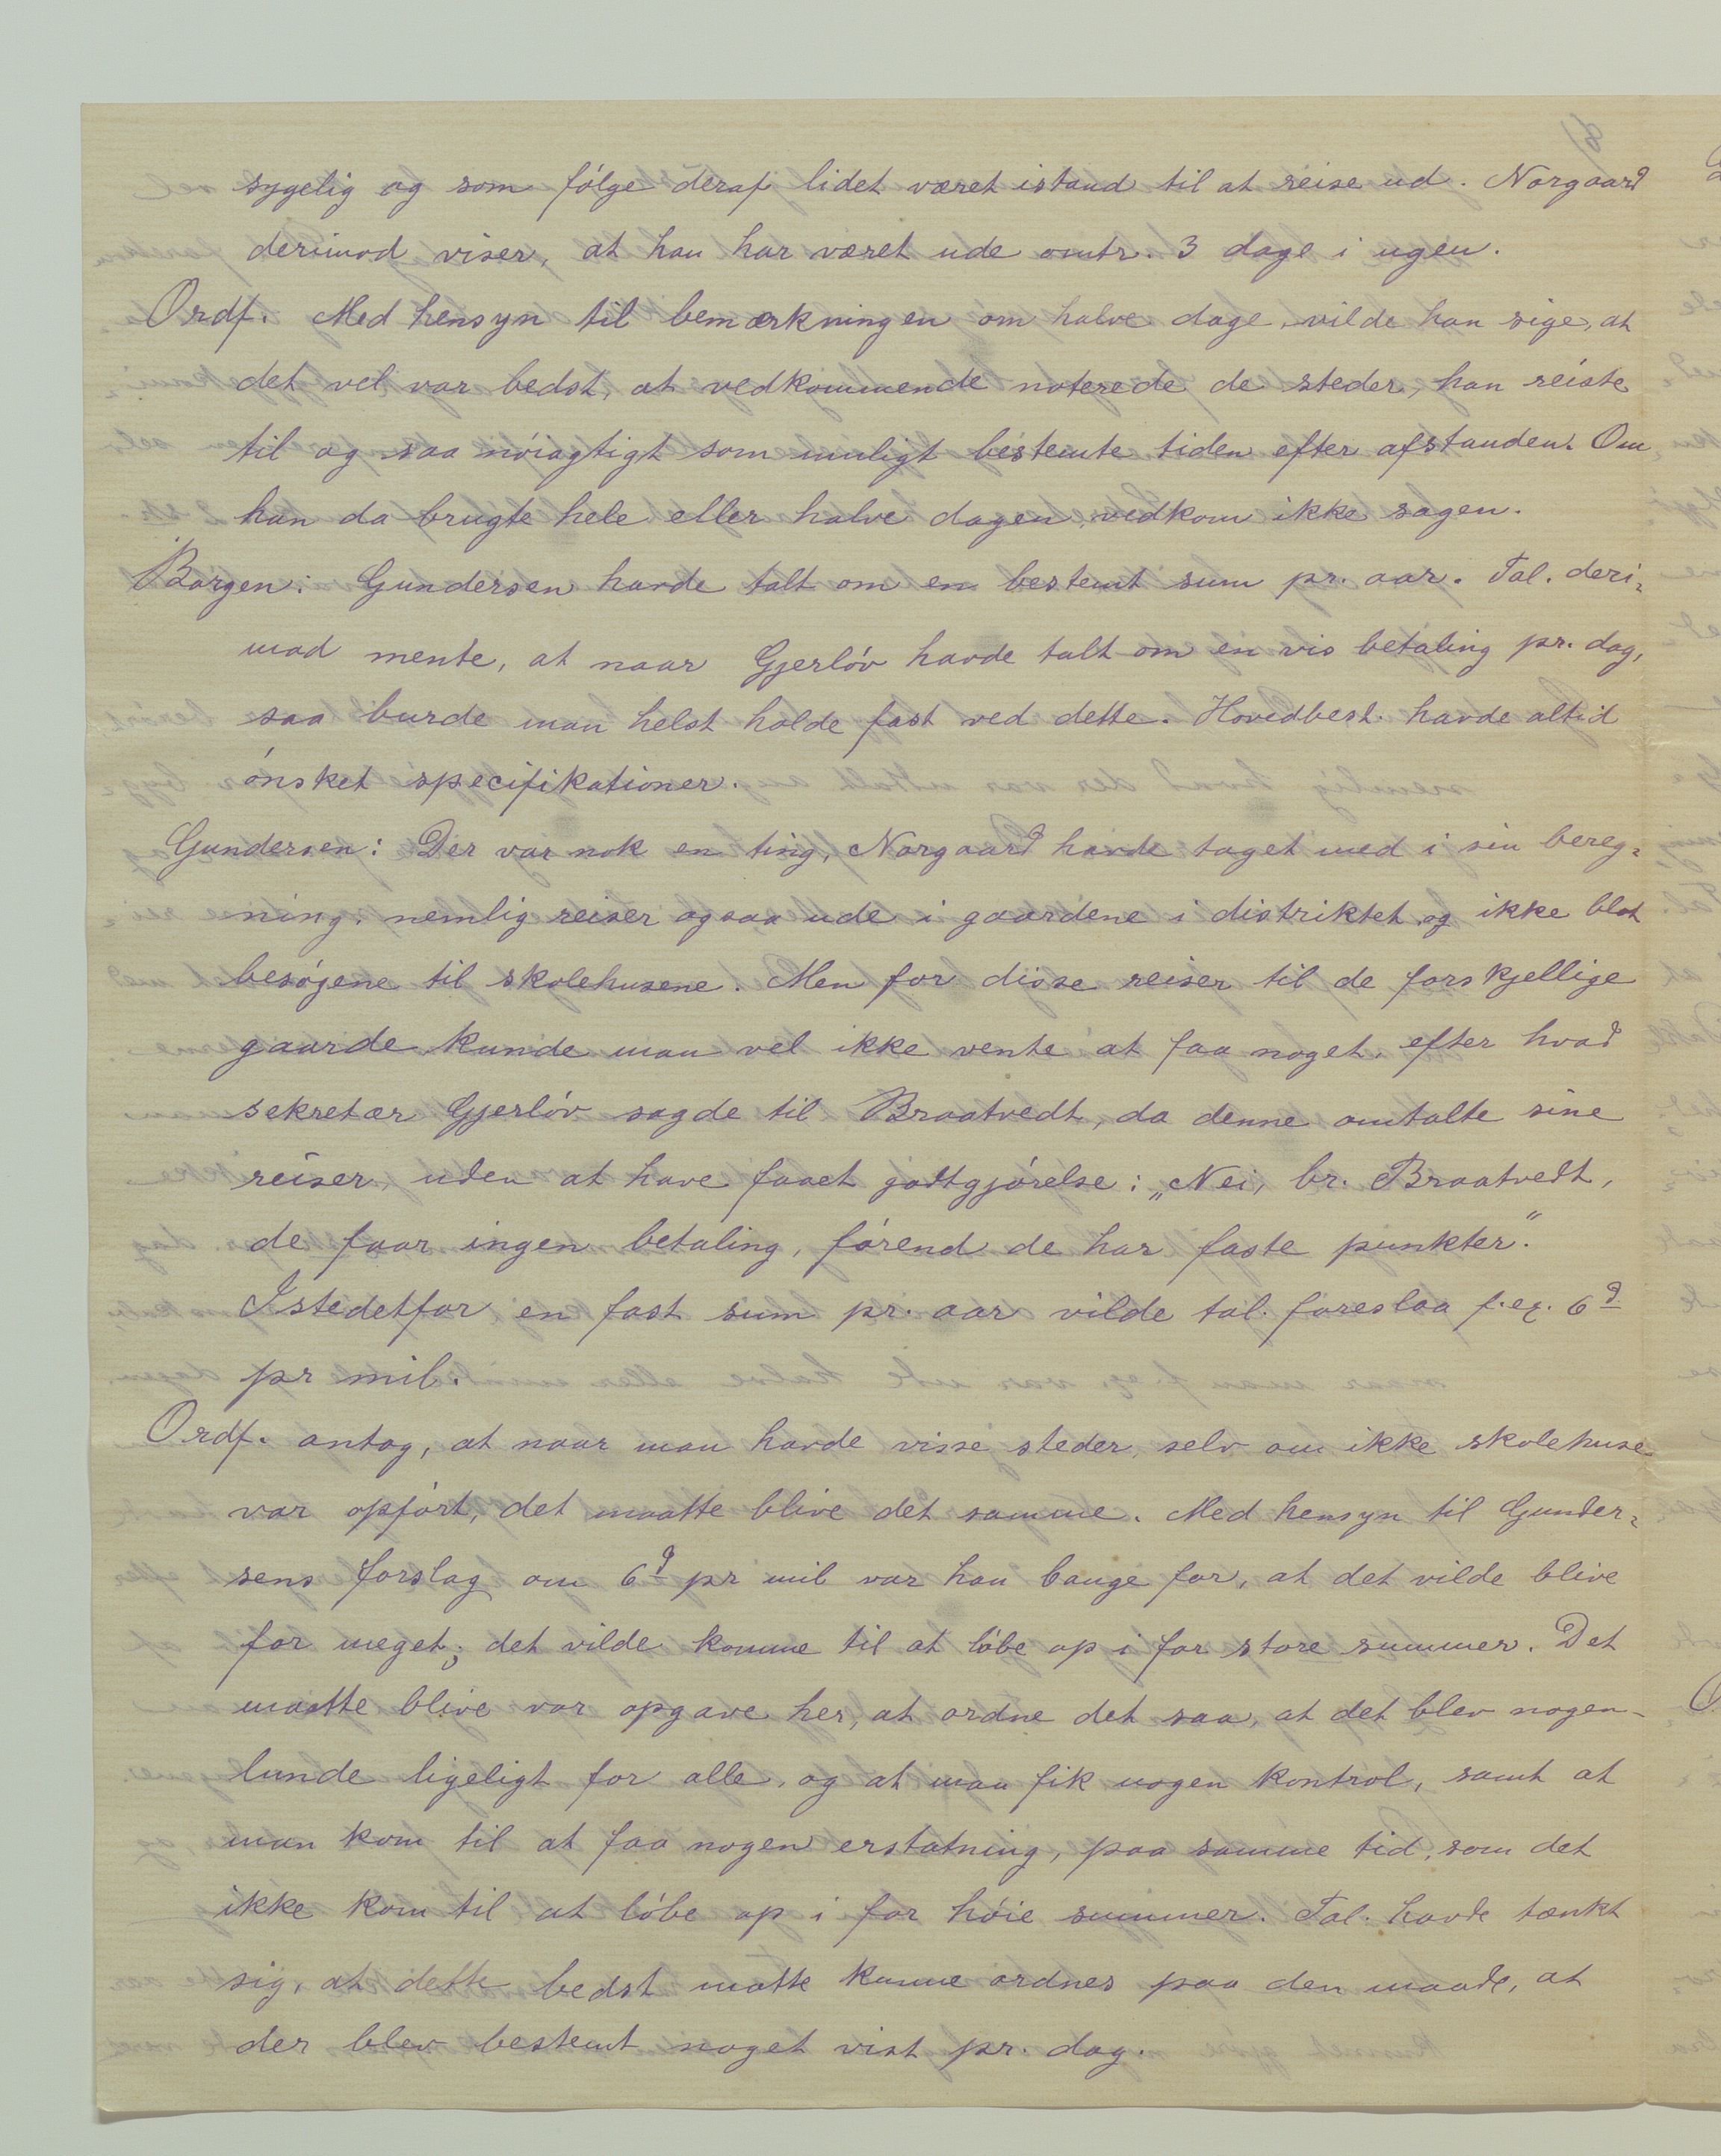 sygelig og som fölge deraf lidet været istand til at reise ud. Norgaard
derimod viser, at han har været ude omtr. 3 dage i ugen.
Ordf. Med hensyn til bemærkningen om halve dage, vilde han sige, at
det vel var bedst, at vedkommende noterede de steder, han reiste
til og saa nöiagtigt som muligt bestemte tiden efter afstanden. Om
han da brugte hele eller halve dagen, vedkom ikke sagen.
Borgen: Gundersen havde talt om en bestemt sum pr. aar. Tal. deri-
mod mente, at naar Gjerlöv havde talt om en vis betaling pr. dag,
saa burde man helst holde fast ved dette. Hovedbest. havde altid
önsket specifikationer.
Gundersen: Der var nok en ting, Norgaard havde taget med i sin bereg-
ning, nemlig reiser ogsaa ude i gaardene i distriktet og ikke blot
besögene til skolehusene. Men for disse reiser til de forskjellige
gaarde kunde man vel ikke vente at faa noget, efter hvad
sekretær Gjerlöv sagde til Braatvedt, da denne omtalte sine
reiser, uden at have faaet godtgjörelse: „Nei, br. Braatvedt,
de faar ingen betaling, förend de har faste punkter."
Istedetfor en fast sum pr. aar vilde tal. foreslaa f. ex. 6d
pr mil.
Ordf. antog, at naar man havde visse steder, selv om ikke skolehuse
var opfört, det maatte blive det samme. Med hensyn til Gunder-
sens forslag om 6d pr mil var han bange for, at det vilde blive
for meget; det vilde komme til at löbe op i for store summer. Det
maatte blive vor opgave her, at ordne det saa, at det blev nogen-
lunde ligeligt for alle, og at man fik nogen kontrol, samt at
man kom til at faa nogen erstatning, paa samme tid, som det
ikke kom til at löbe op i for höie summer. Tal. havde tænkt
sig, at dette bedst matte kunne ordnes paa den maade, at
der blev bestemt noget vist pr. dag.